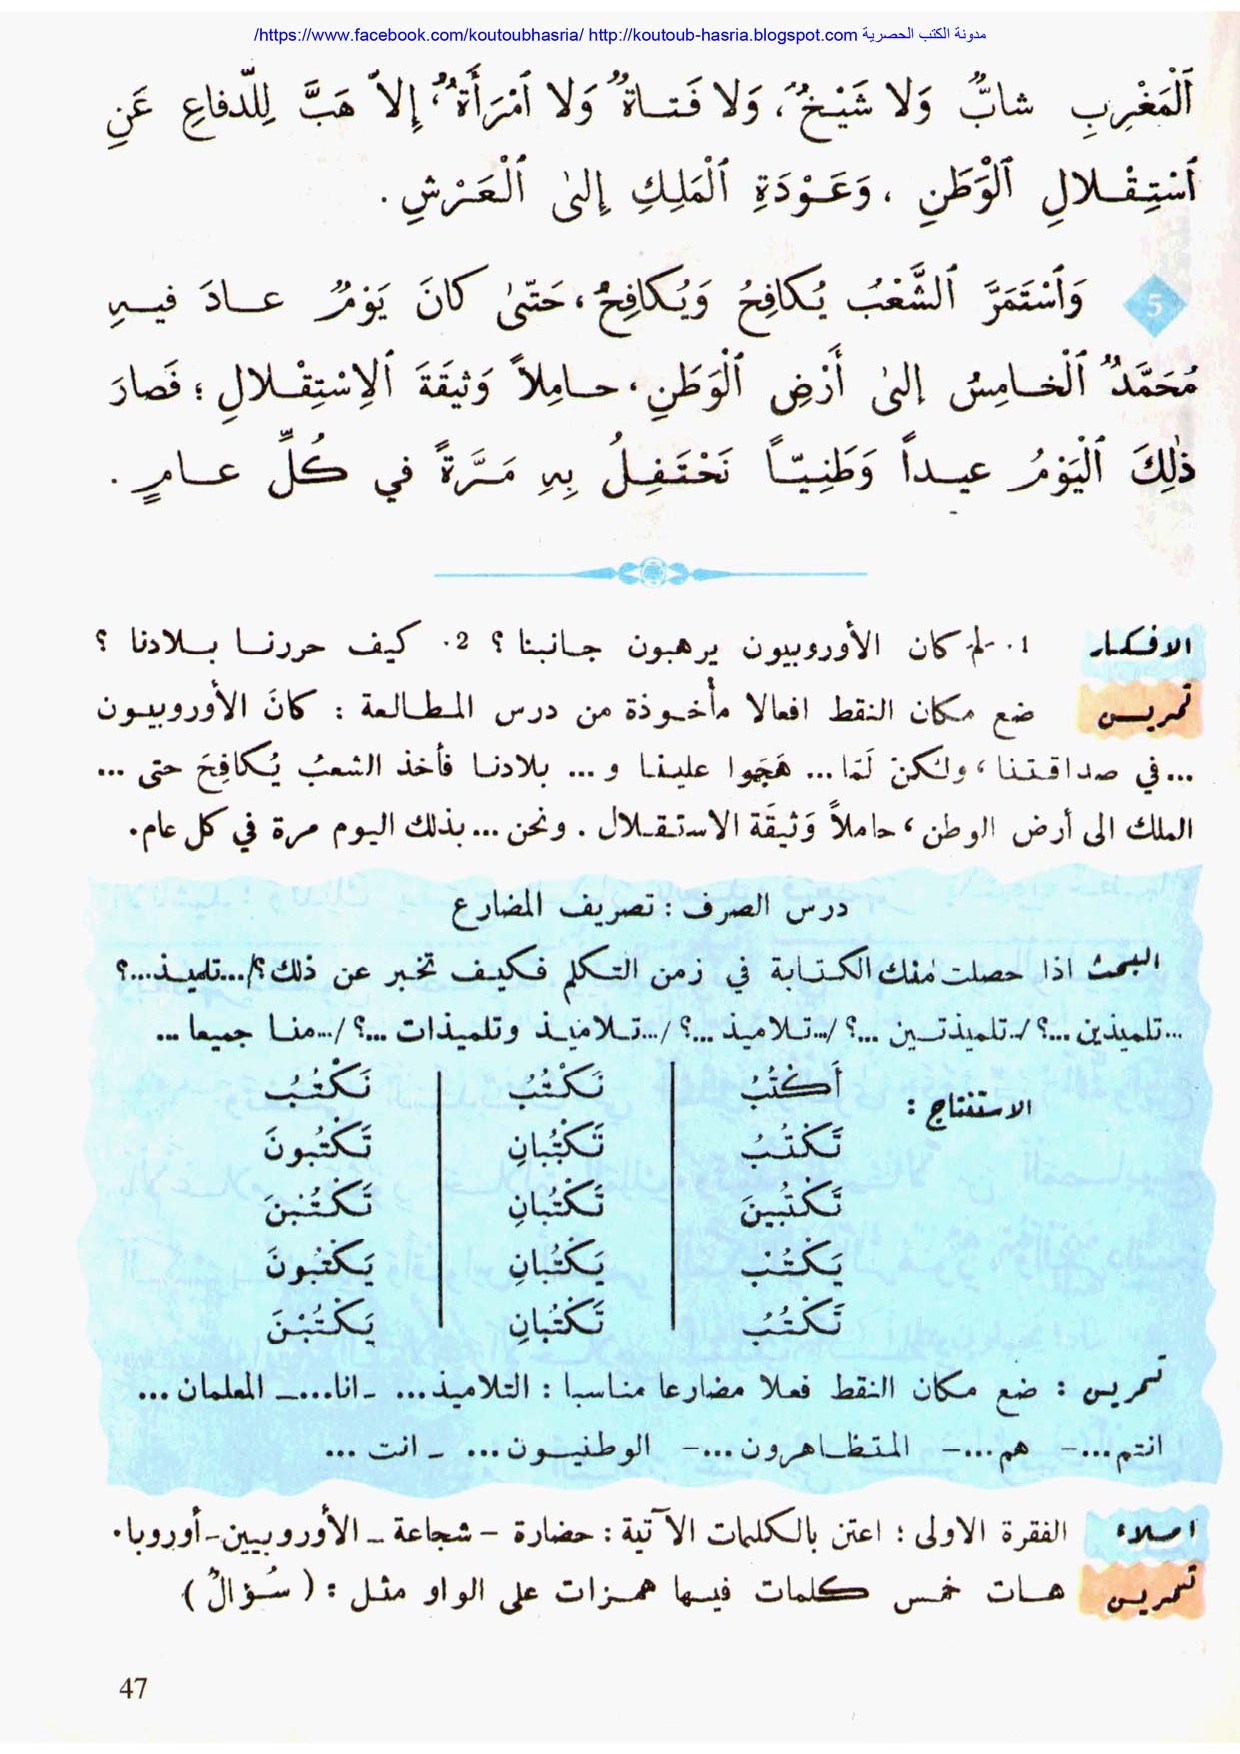 https://www.facebook.com/koutoubhasria/ http://koutoub-hasria.blogspot.com مدونة الكتب الحصرية/
ٱلْمَغْرِبِ شابٌّ وَلا شَيْخٌ، وَلا فَتاةٌ وَلا ٱمْرَأَةٌ، إِلاّ هَبَّ لِلدِّفاعِ عَنِ
ٱسْتِقْلالِ ٱلْوَطَنِ ، وَعَوْدَةِ ٱلْمَلِكِ إِلىٰ ٱلْعَرْشِ .
5 وَٱسْتَمَرَّ ٱلشَّعْبُ يُكافِحُ وَيُكافِحُ، حَتّىٰ كانَ يَوْمٌ عادَ فيهِ
مُحَمَّدٌ ٱلْخامِسُ إِلىٰ أَرْضِ ٱلْوَطَنِ، حامِلاً وَثيقَةَ ٱلِاسْتِقْلالِ ؛ فَصارَ
ذٰلِكَ ٱلْيَوْمُ عيداً وَطَنِيّاً نَحْتَفِلُ بِهِ مَرَّةً في كُلِّ عامٍ .
الافكار 1. لم كان الأوروبيون يرهبون جانبنا ؟ 2. كيف حررنا بلادنا ؟
تمرين ضع مكان النقط افعالا مأخوذة من درس المطالعة : كانَ الأوروبيون
...في صداقتنا، ولكن لَمّا... هَجَموا علينا و... بلادنا فأخذ الشعبُ يُكافِحَ حتى ...
الملك الى أرض الوطن، حاملاً وَثيقَة الاستقلال . ونحن ...بذلك اليوم مرة في كل عام.
درس الصرف : تصريف المضارع
البحث اذا حصلت منك الكتابة في زمن التكلم فكيف تخبر عن ذلك؟/...تلميذ...؟
...تلميذين ...؟/...تلميذتين ...؟/...تلاميذ ...؟/...تلاميذ وتلميذات ...؟/...منا جميعا ...
الاستنتاج : أَكْتُبُ نَكْتُبُ نَكْتُبُ
تَكْتُبُ تَكْتُبانِ تَكْتُبونَ
تَكْتُبينَ تَكْتُبانِ تَكْتُبْنَ
يَكْتُبُ يَكْتُبانِ يَكْتُبونَ
تَكْتُبُ تَكْتُبانِ يَكْتُبْنَ
تمرين : ضع مكان النقط فعلا مضارعا مناسبا : التلاميذ... -انا...- المعلمان ...
انتم ...- هم ...- المتظاهرون ...- الوطنيون ... - انت ...
املاء الفقرة الاولى ؛ اعتن بالكلمات الآتية : حضارة - شجاعة - الأوروبيين-أوروبا.
تمرين هات خمس كلمات فيها همزات على الواو مثل : ( سُؤالٌ )
47